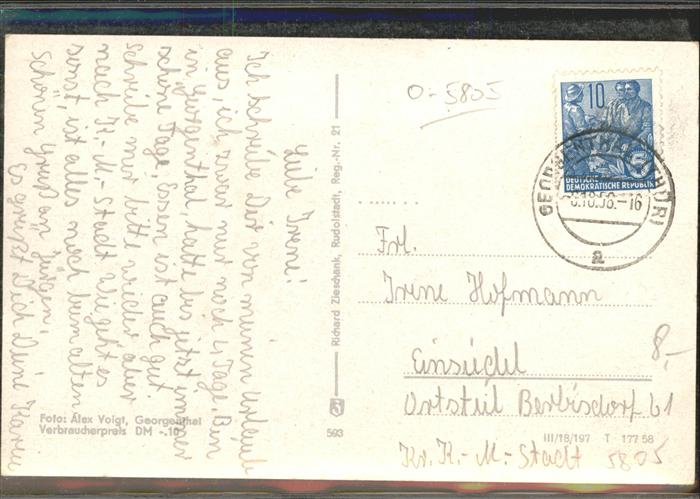 Liebe Irene!
Ich schreibe Dir von meinem Urlaub
aus, ich zwar nur noch 4 Tage. Bin
in Georgenthal, hatte bis jetzt immer
schöne Tage, Essen ist auch gut
Schreibe mir bitte wieder aber
nach K.-M.-Stadt. Wie geht es
sonst, ist alles noch beim alten
Schönen Gruß an Jürgen.
Es grüsst Dich Deine Karin
Foto: Alex Voigt, Georgenthal
Verbraucherpreis DM -.10
Richard Zieschank, Rudolstadt, Reg.-Nr. 21
593
O-5805
10
5
DEUTSCHE
DEMOKRATISCHE REPUBLIK
GEORGENTHAL (THÜR)
-16
a
Frl.
Irene Hofmann
Einsiedel
Ortsteil Berbisdorf 61
Kr. K.-M.-Stadt 5805
8,-
III/18/197 T 177 58